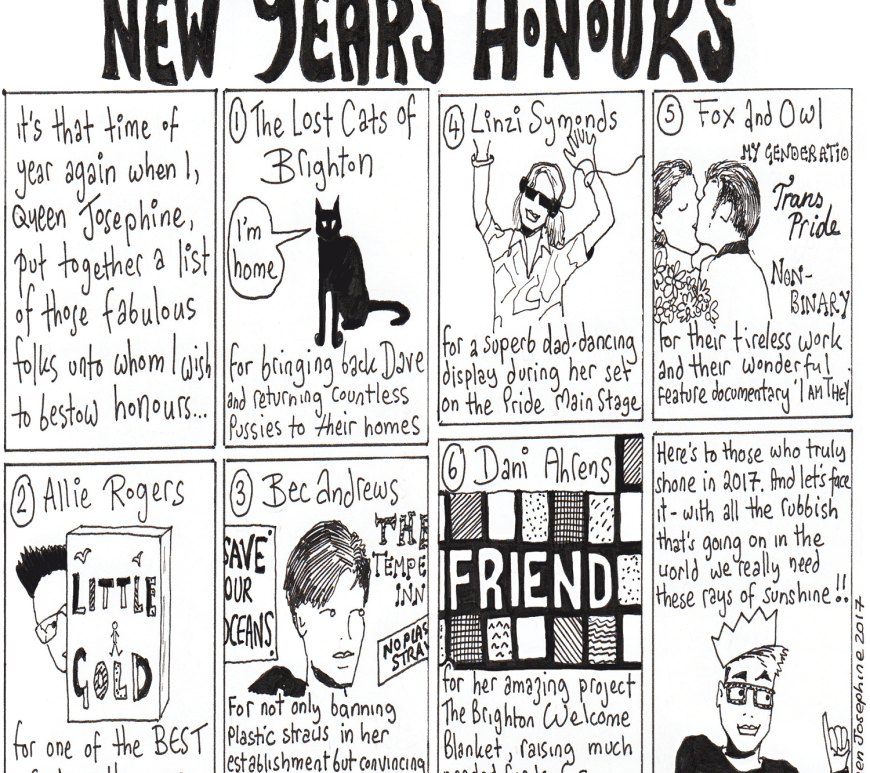 NEW YEARS HONOURS
it's that time of
year again when I,
Queen Josephine,
put together a list
of those fabulous
folks unto whom I wish
to bestow honours...
① The Lost Cats of
Brighton
I'm
home
for bringing back Dave
and returning countless
Pussies to their homes
② Allie Rogers
LITTLE
GOLD
for one of the BEST
③ Bec Andrews
SAVE
OUR
OCEANS
THE
TEMPE
INN
NO PLAS
STRAW
For not only banning
Plastic straws in her
establishment but convincing
④ Linzi Symonds
for a superb dad-dancing
display during her set
on the Pride Main Stage
⑤ Fox and Owl
MY GENDERATIO
Trans
Pride
NON-
BINARY
for their tireless work
and their wonderful
feature documentary 'I AM THEY'
⑥ Dani Ahrens
FRIEND
for her amazing project
The Brighton Welcome
Blanket, raising much
Here's to those who truly
shone in 2017. And let's face
it - with all the rubbish
that's going on in the
world we really need
these rays of sunshine!!
Josephine 2017